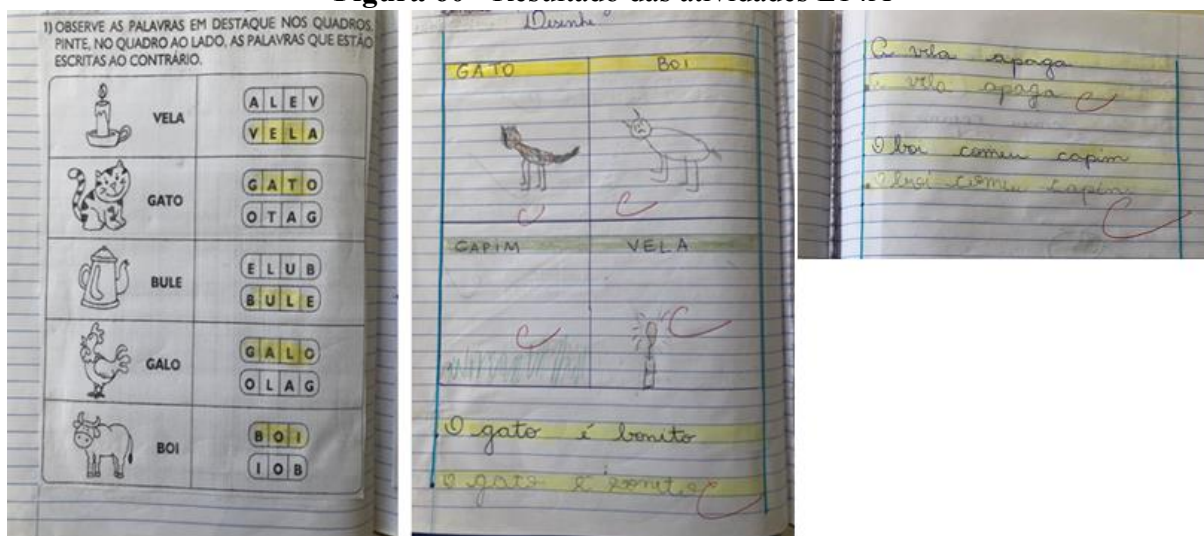 1) OBSERVE AS PALAVRAS EM DESTAQUE NOS QUADROS.
PINTE, NO QUADRO AO LADO, AS PALAVRAS QUE ESTÃO
ESCRITAS AO CONTRÁRIO.
VELA
ALEV
VELA
GATO
GATO
OTAG
BULE
ELUB
BULE
GALO
GALO
OLAG
BOI
BOI
IOB
Desenhe
GATO BOI
CAPIM VELA
O gato é bonito
O gato é bonito
A vela apaga
A vela apaga
O boi comeu capim
O boi comeu capim